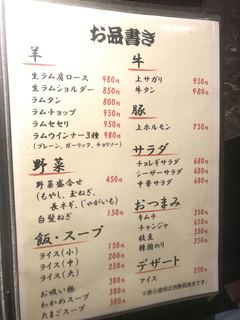 お品書き
羊
生ラム肩ロース 980円
生ラムショルダー 850円
ラムタン 800円
ラムチョップ 950円
ラムセセリ 950円
ラムウインナー3種 980円
(プレーン、ガーリック、チョリソー)
野菜
野菜盛合せ 450円
(もやし、玉ねぎ、
長ネギ、じゃがいも)
白髪ねぎ 150円
飯・スープ
ライス(小) 150円
ライス(中) 200円
ライス(大) 250円
お吸い物
わかめスープ 350円
たまごスープ 350円
牛
上サガリ 950円
牛タン 980円
豚
上ホルモン 750円
サラダ
チョレギサラダ 680円
シーザーサラダ 680円
中華サラダ 680円
おつまみ
キムチ
チャンジャ
枝豆
韓国のり
デザート
アイス
※表示価格は消費税抜きです。